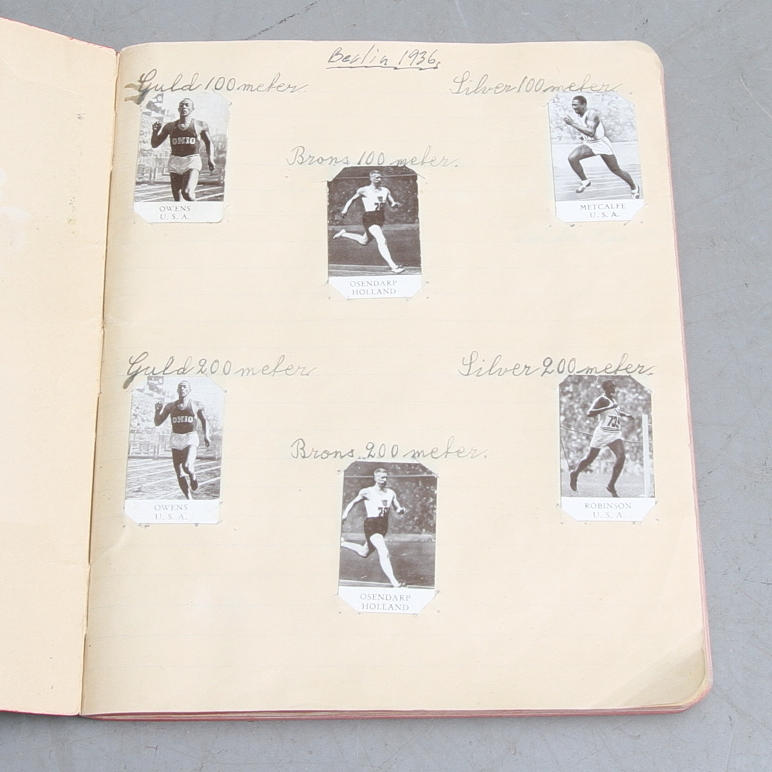 Berlin 1936.
Guld 100 meter.
Silver 100 meter.
OHIO
OWENS
U. S. A.
METCALFE
U. S. A.
Brons 100 meter.
OSENDARP
HOLLAND
Guld 200 meter.
Silver 200 meter.
OHIO
OWENS
U. S. A.
ROBINSON
U. S. A.
Brons 200 meter.
OSENDARP
HOLLAND